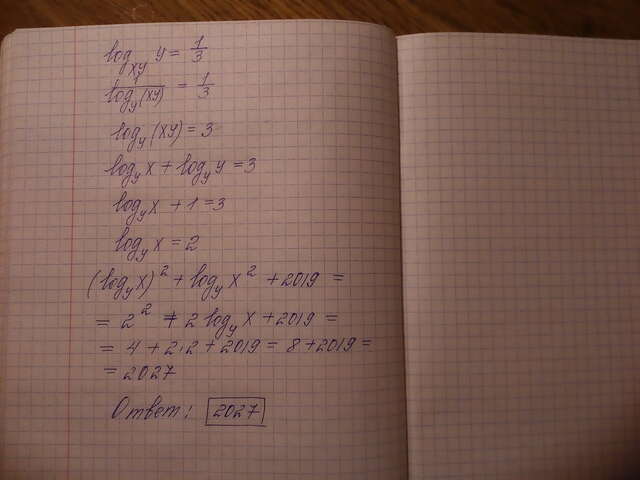 log_{xy} y = 1/3
1/log_y(xy) = 1/3
log_y(xy) = 3
log_y x + log_y y = 3
log_y x + 1 = 3
log_y x = 2
(log_y x)² + log_y x² + 2019 =
= 2² + 2 log_y x + 2019 =
= 4 + 2·2 + 2019 = 8 + 2019 =
= 2027
Ответ: 2027